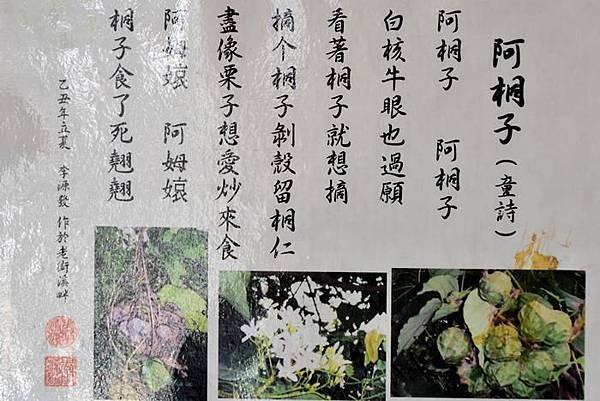 阿桐子（童詩）
阿桐子 阿桐子
白核牛眼也過願
看著桐子就想摘
摘个桐子剝殼留桐仁
盡像栗子想愛炒來食
阿姆㜮 阿姆㜮
桐子食了死翹翹
乙丑年立夏 李源發 作於老街溪畔